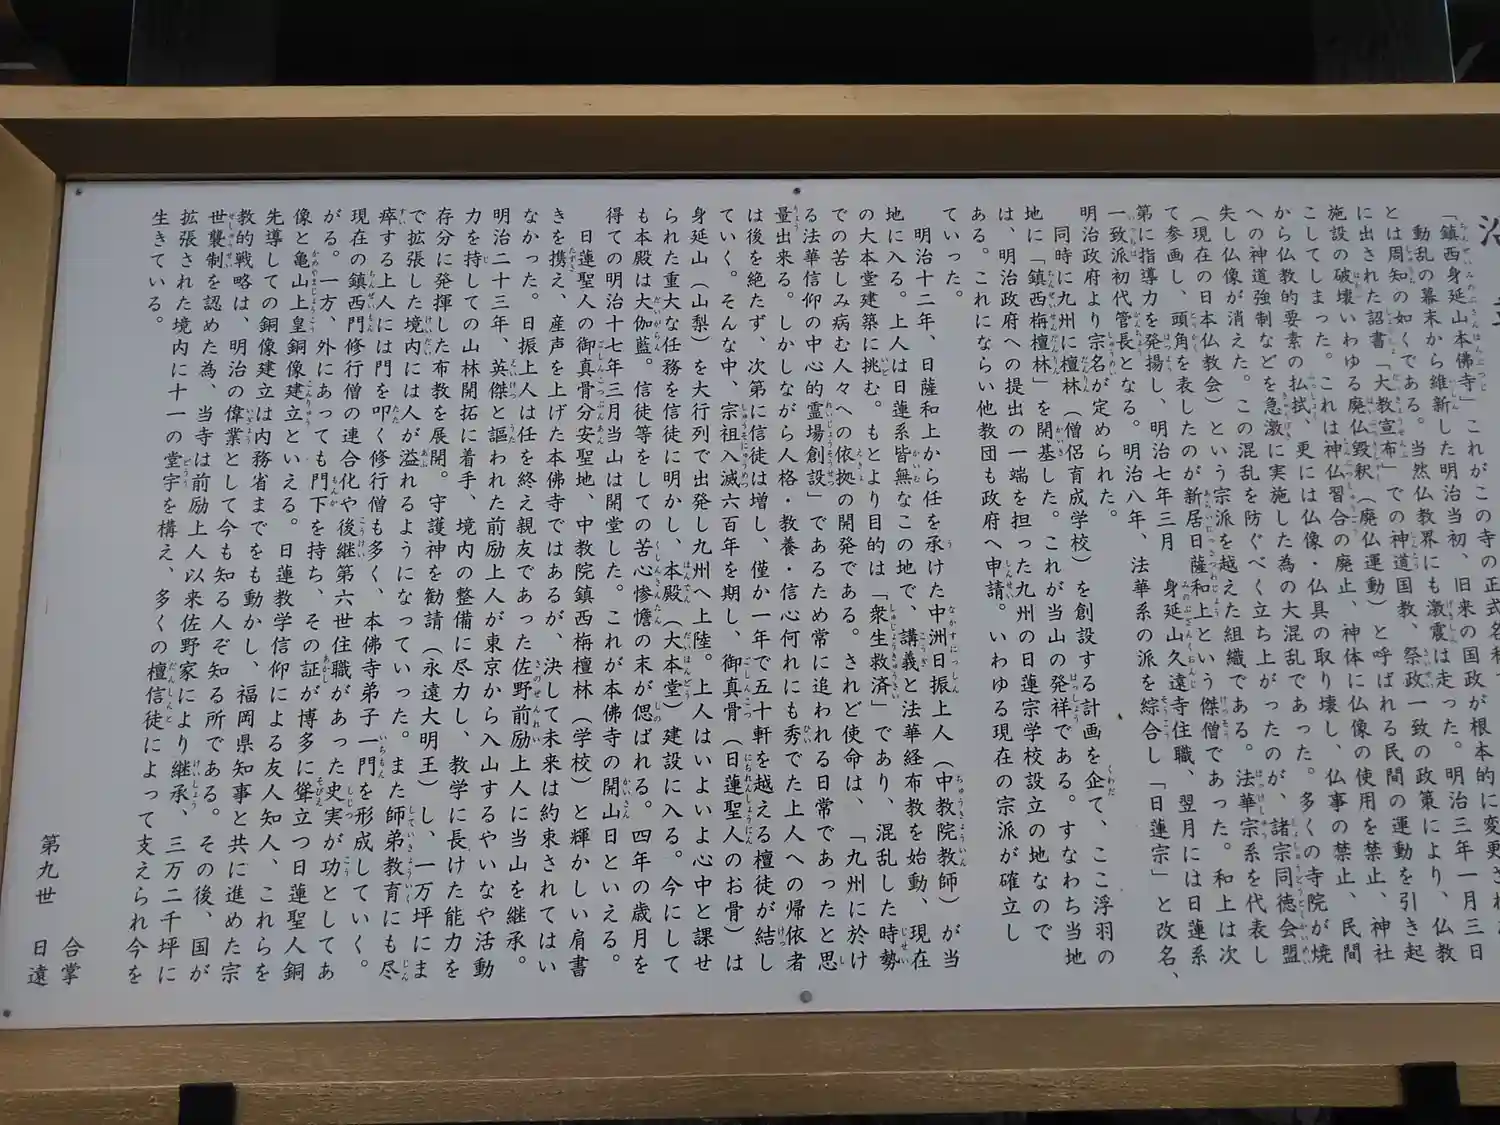 沿革
「鎮西身延山本佛寺」これがこの寺の正式名称で
動乱の幕末から維新した明治当初、旧来の国政が根本的に変更され
とは周知の如くである。当然仏教界にも激震は走った。明治三年一月三日
に出された詔書「大教宣布」での神道国教、祭政一致の政策により、仏教
施設の破壊いわゆる廃仏毀釈(廃仏運動)と呼ばれる民間の運動を引き起
こしてしまった。これは神仏習合の廃止、神体に仏像の使用を禁止、神社
から仏教的要素の払拭、更には仏像・仏具の取り壊し、仏事の禁止、民間
への神道強制などを急激に実施した為の大混乱であった。多くの寺院が焼
失し仏像が消えた。この混乱を防ぐべく立ち上がったのが、諸宗同徳会盟
(現在の日本仏教会)という宗派を越えた組織である。法華宗系を代表し
て参画し、頭角を表したのが新居日薩和上という傑僧であった。和上は次
第に指導力を発揚し、明治七年三月 身延山久遠寺住職、翌月には日蓮系
一致派初代管長となる。明治八年、法華系の派を綜合し「日蓮宗」と改名、
明治政府より宗名が定められた。
同時に九州に檀林(僧侶育成学校)を創設する計画を企て、ここ浮羽の
地に「鎮西梅檀林」を開基した。これが当山の発祥である。すなわち当地
は、明治政府への提出の一端を担った九州の日蓮宗学校設立の地なので
ある。これにならい他教団も政府へ申請。いわゆる現在の宗派が確立し
ていった。
明治十二年、日薩和上から任を承けた中洲日振上人(中教院教師)が当
地に入る。上人は日蓮系皆無なこの地で、講義と法華経布教を始動、現在
の大本堂建築に挑む。もとより目的は「衆生救済」であり、混乱した時勢
での苦しみ病む人々への依拠の開発である。されど使命は、「九州に於け
る法華信仰の中心的霊場創設」であるため常に追われる日常であったと思
量出来る。しかしながら人格・教養・信心何れにも秀でた上人への帰依者
は後を絶たず、次第に信徒は増し、僅か一年で五十軒を越える檀徒が結し
ていく。そんな中、宗祖入滅六百年を期し、御真骨(日蓮聖人のお骨)は
身延山(山梨)を大行列で出発し九州へ上陸。上人はいよいよ心中と課せ
られた重大な任務を信徒に明かし、本殿(大本堂)建設に入る。今にして
も本殿は大伽藍。信徒等をしての苦心惨憺の末が偲ばれる。四年の歳月を
得ての明治十七年三月当山は開堂した。これが本佛寺の開山日といえる。
日蓮聖人の御真骨分安聖地、中教院鎮西梅檀林(学校)と輝かしい肩書
きを携え、産声を上げた本佛寺ではあるが、決して未来は約束されてはい
なかった。日振上人は任を終え親友であった佐野前励上人に当山を継承。
明治二十三年、英傑と謳われた前励上人が東京から入山するやいなや活動
力を持しての山林開拓に着手、境内の整備に尽力し、教学に長けた能力を
存分に発揮した布教を展開。守護神を勧請(永遠大明王)し、一万坪にま
で拡張した境内には人が溢れるようになっていった。また師弟教育にも尽
瘁する上人には門を叩く修行僧も多く、本佛寺弟子一門を形成していく。
現在の鎮西門修行僧の連合化や後継第六世住職があった史実が功としてあ
がる。一方、外にあっても門下を持ち、その証が博多に聳立つ日蓮聖人銅
像と亀山上皇銅像建立といえる。日蓮教学信仰による友人知人、これらを
先導しての銅像建立は内務省までをも動かし、福岡県知事と共に進めた宗
教的戦略は、明治の偉業として今も知る人ぞ知る所である。その後、国が
世襲制を認めた為、当寺は前励上人以来佐野家により継承、三万二千坪に
拡張された境内に十一の堂宇を構え、多くの檀信徒によって支えられ今を
生きている。
合掌
第九世 日遠